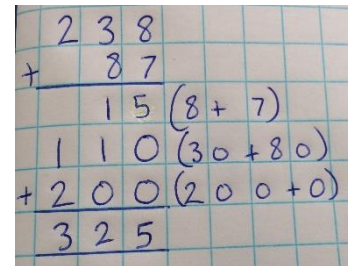 238
+ 87
15 (8 + 7)
110 (30 + 80)
+ 200 (200 + 0)
325